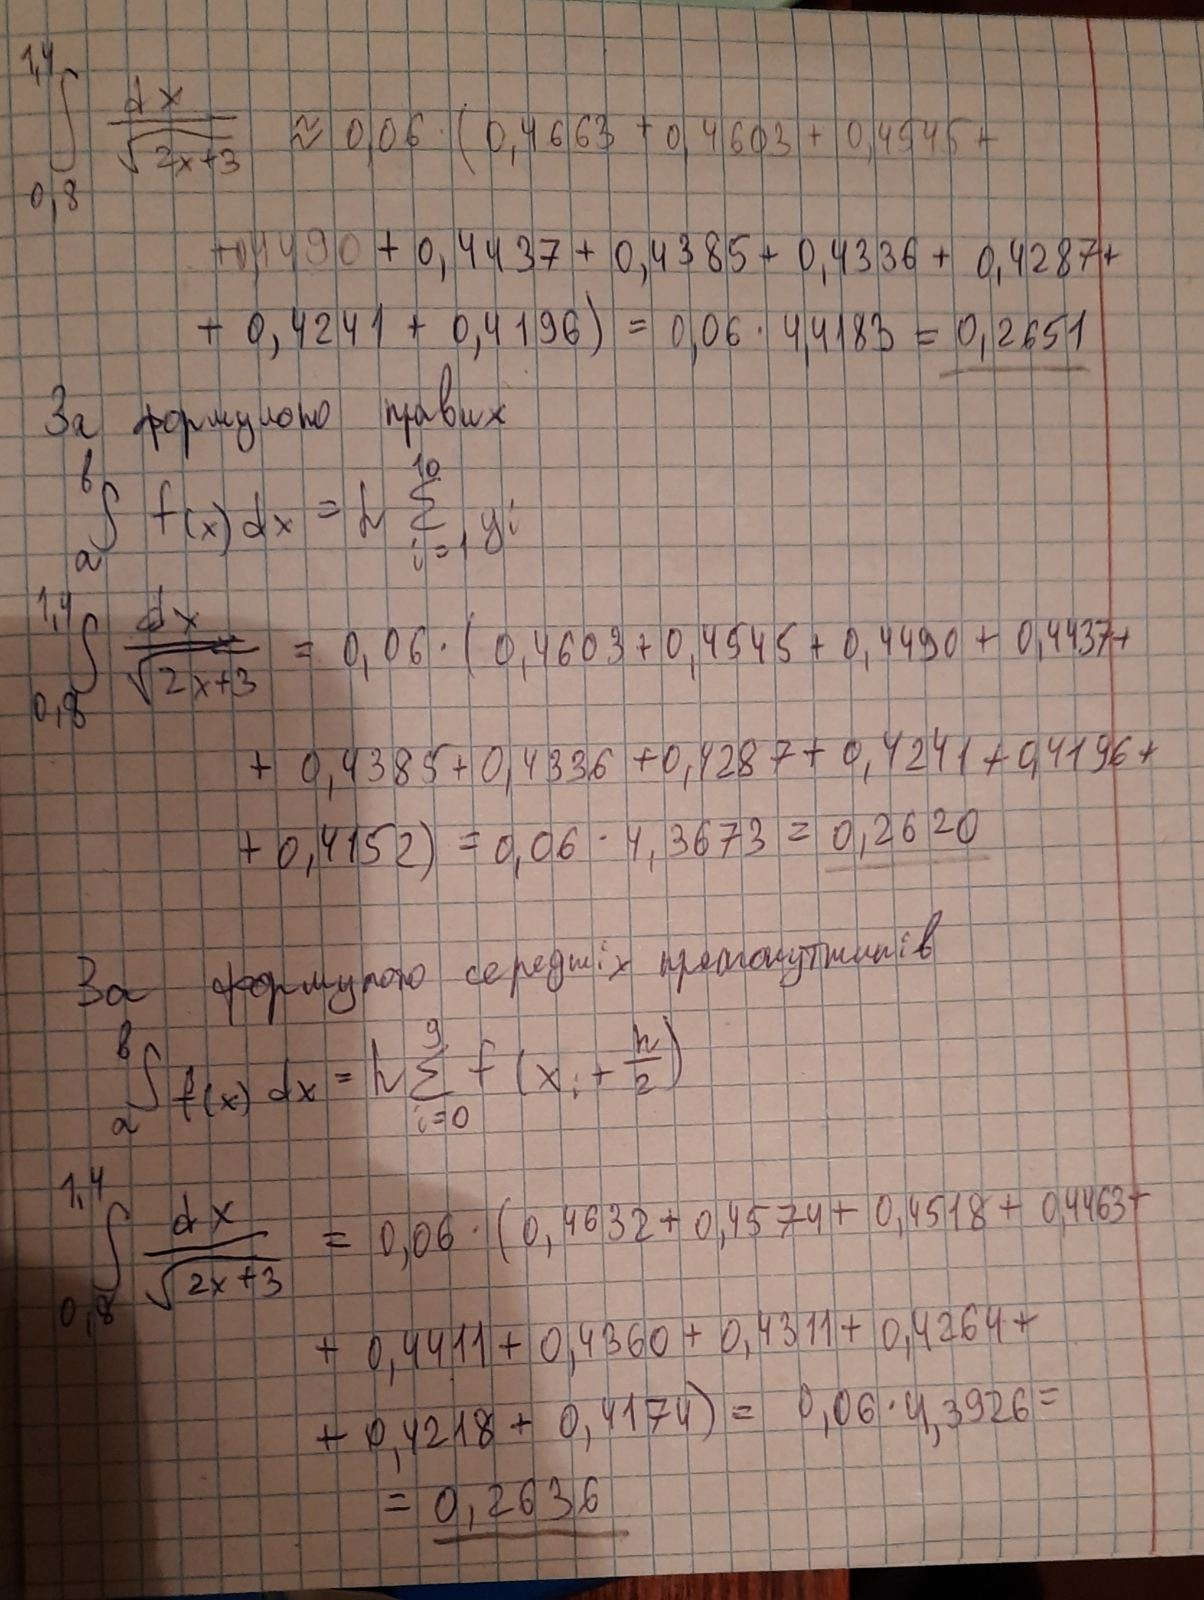 ∫_{0,8}^{1,4} dx/√(2x+3) ≈ 0,06·(0,4663 + 0,4603 + 0,4545 +
+0,4490 + 0,4437 + 0,4385 + 0,4336 + 0,4287 +
+ 0,4241 + 0,4196) = 0,06 · 4,4183 = 0,2651
За формулою правих
∫_a^b f(x) dx = h ∑_{i=1}^{10} yi
∫_{0,8}^{1,4} dx/√(2x+3) = 0,06·(0,4603 + 0,4545 + 0,4490 + 0,4437 +
+ 0,4385 + 0,4336 + 0,4287 + 0,4241 + 0,4196 +
+ 0,4152) = 0,06 · 4,3673 = 0,2620
За формулою середніх прямокутників
∫_a^b f(x) dx = h ∑_{i=0}^{9} f(xi + h/2)
∫_{0,8}^{1,4} dx/√(2x+3) = 0,06·(0,4632 + 0,4574 + 0,4518 + 0,4463 +
+ 0,4411 + 0,4360 + 0,4311 + 0,4264 +
+ 0,4218 + 0,4174) = 0,06 · 4,3926 =
= 0,2636